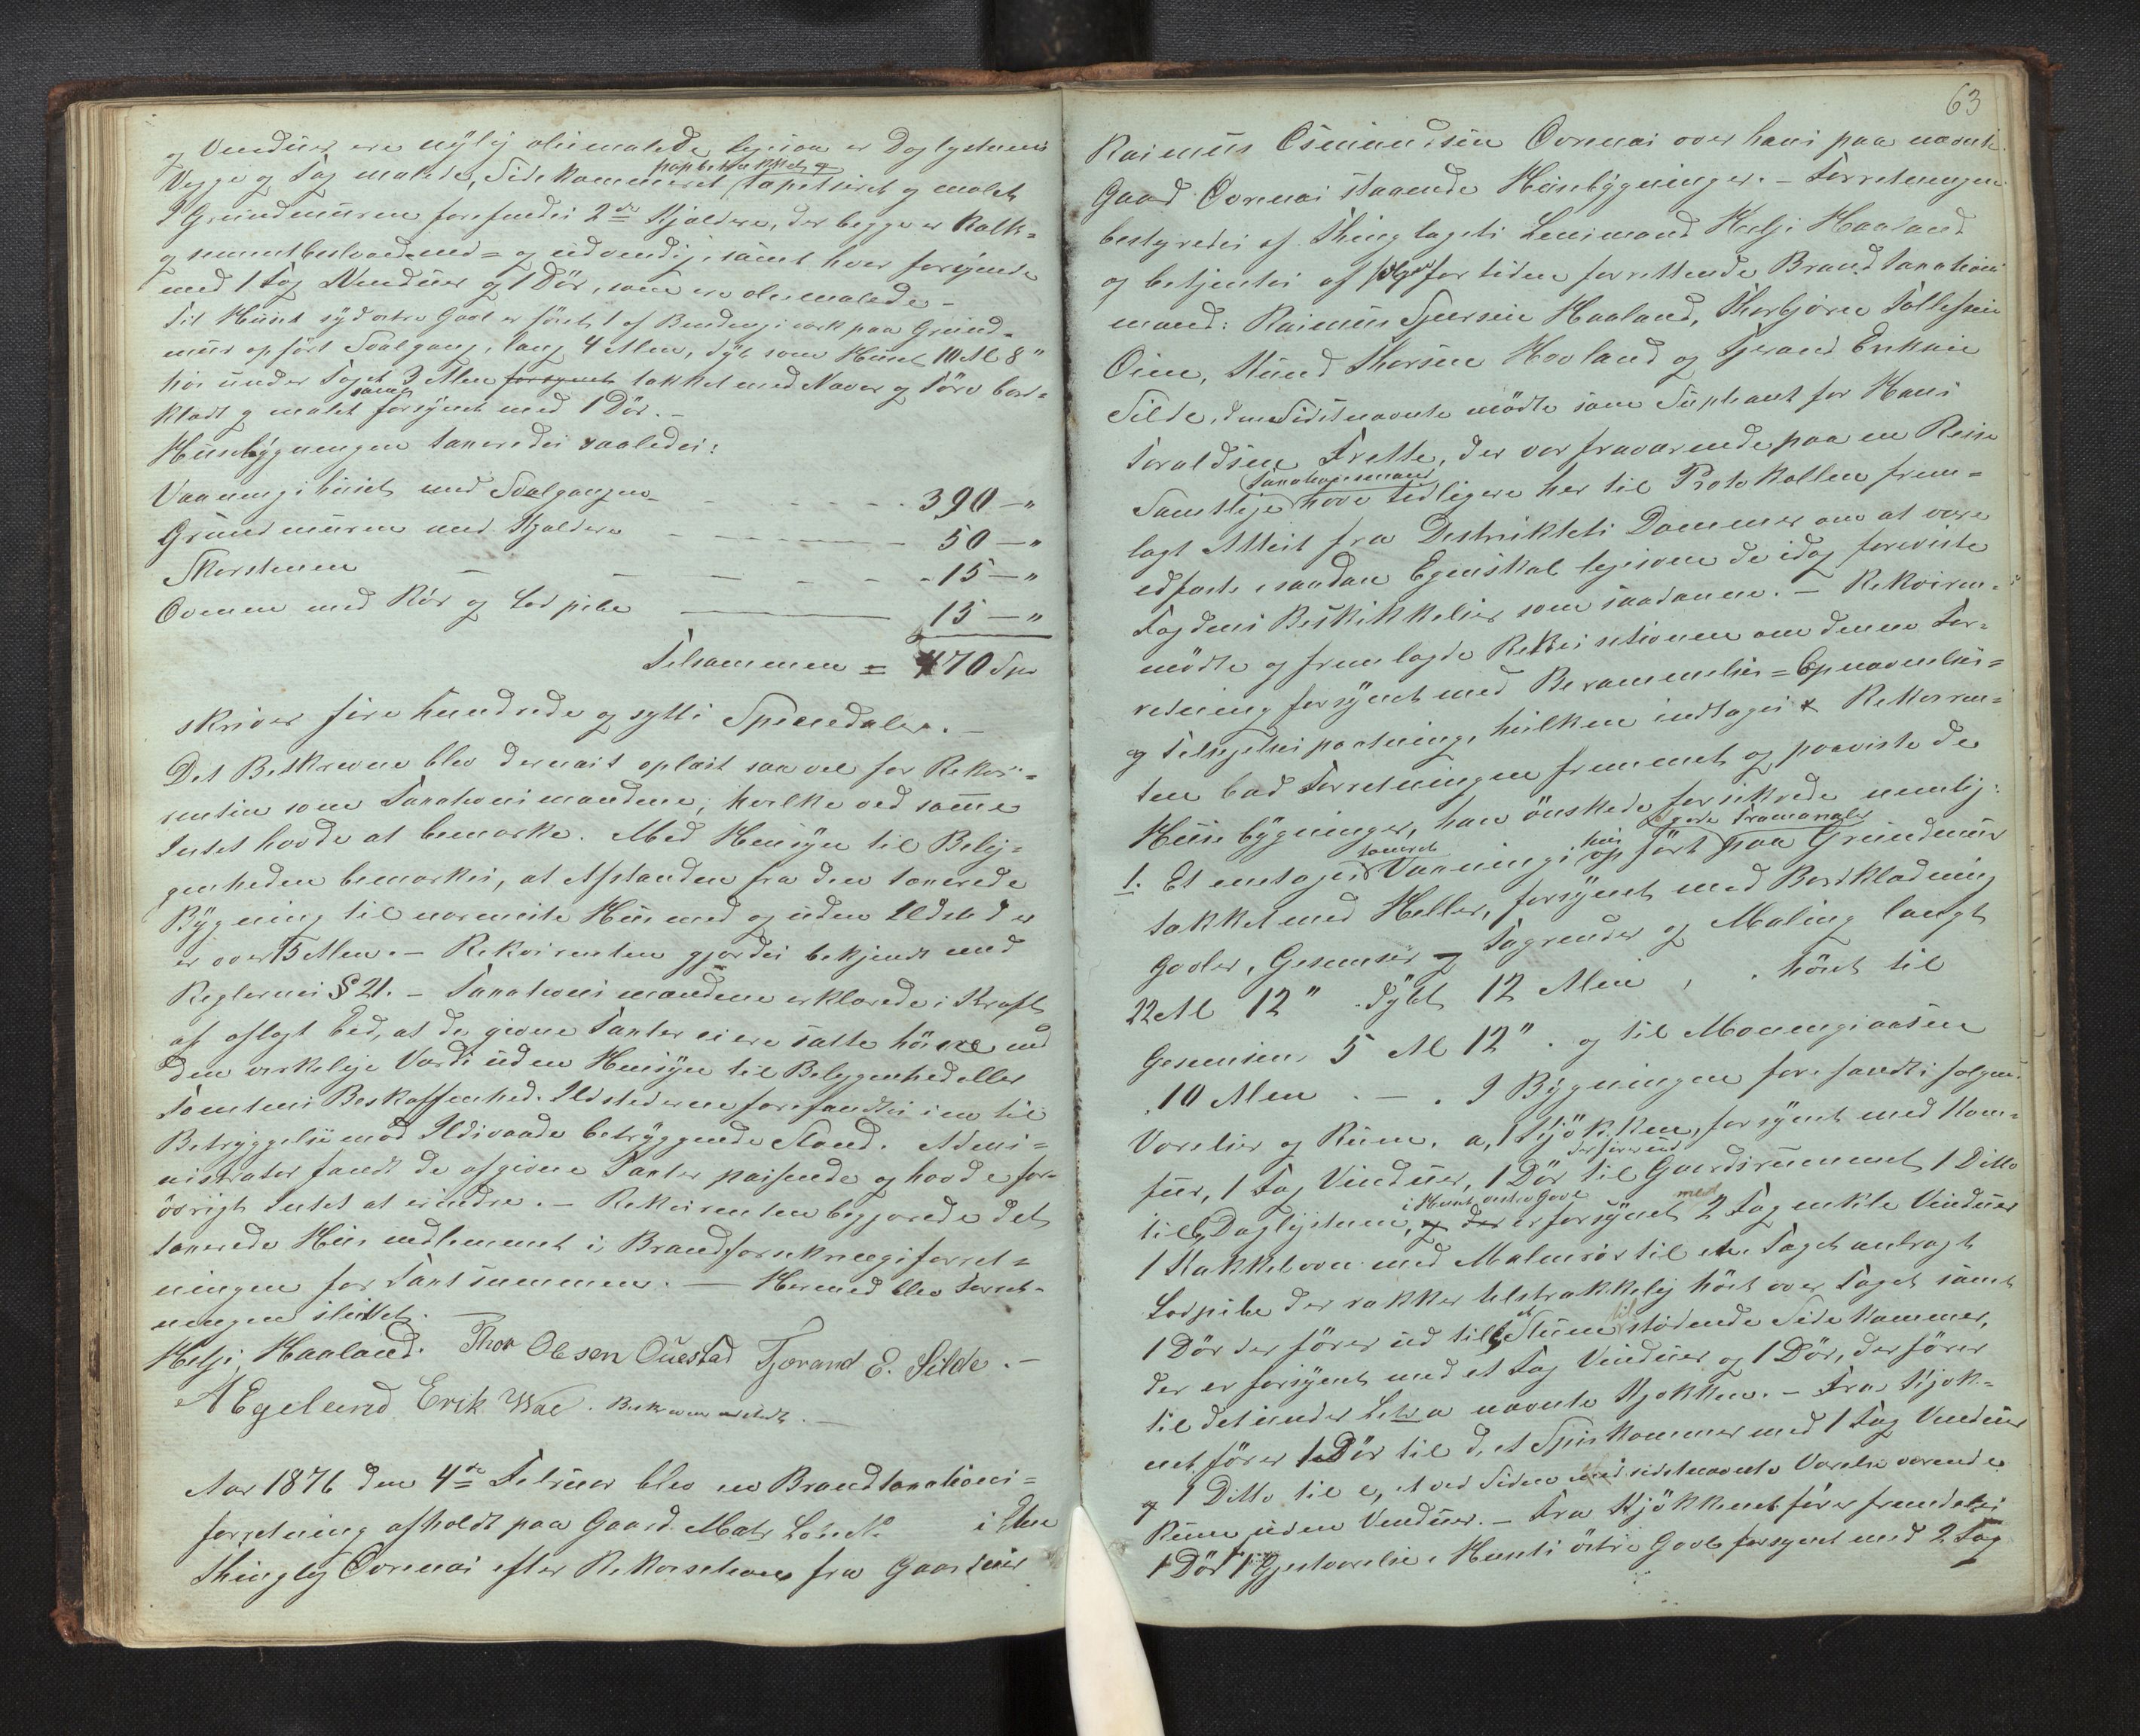 og Vinduer ere nylig oliemalede ligesaa er Daglystuens
Vægge og Tag malede, Sidekammeret papbetrukket og tapetseret og malet
I Grundmuren forefindes 2de Kjældere, der begge er Kalk-
og sementbeslaaede ind- og udvendig, samt hver forsynede
med 1 Fag Vinduer og 1 Dör, som ere oliemalede –
Til Huset sydvestre Gavl er föiet 1 af Bindingsverk paa Grund-
mur opfört Svalgang, lang 4 Alen, dyb som Huset 10 Al 8"
höi under Taget 3 Alen takket med Næver og Törv bord-
klædt og malet samt forsynet med 1 Dör. –
Husebygningen taxeredes saaledes:
Vaaningshuset med Svalgangen 390 – "
Grundmuren med Kjeldere 50 – "
Skorstenen 15 – "
Ovnene med Rör og Lodpibe 15 – "
Tilsammen = 470 Spd
skriver fire hundrede og sytti Speciedaler. –
Det Beskrevne blev dernæst oplæst saavel for Rekvi-
renten som Taxationsmændene, hvilke ved samme
Intet havde at bemærke. Med Hensyn til Belig-
genheden bemærkes, at Afstanden fra den taxerede
Bygning til nærmeste Hus med og uden Ildsted er
er over 15 Alen. – Rekvirenten gjordes bekjendt med
Reglernes § 21. – Taxationsmændene erklærede i Kraft
af aflagt Eed, at de givne Taxter ei ere satte höiere end
den virkelige Værdi uden Hensyn til Beliggenhed eller
Tomtens Beskaffenhed. Ildstederne forefandtes i en til
Betryggelse mod Ildsvaade betryggende Stand. Admi-
nistrator fandt de afgivne Taxter passende og havde for-
övrigt Intet at erindre. – Rekvirenten begjærede det
taxerede Hus indlemmet i Brandforsikringsforret-
ningen for Taxtsummen. – Hermed blev Forret-
ningen sluttet.
Helje Haaland. Thor Olsen Ouestad Tjerand E. Silde. –
A Egeland Erik Wae. Beskreven udstedt. –
Aar 1876 den 4de Februar blev en Brandtaxations-
forretning afholdt paa Gaard Matr Löbe No i Etne
Thinglag Övrenæs efter Rekvisition fra Gaardeier
63
Rasmus Osmundsen Övrenæs over hans paa nævnte
Gaard Övrenæs staaende Husebygninger. – Forretningen
bestyredes af Thinglagets Lensmand Helje Haaland
og betjentes af fölgende for tiden forrettende Brandtaxations
mænd: Rasmus Sjursen Haaland, Thorbjörn Tollefsen
Öien, Knud Thorsen Hovland og Tjerand Eriksen
Silde, den Sidstnævnte mödte som Supleant for Hans
Toraldsen Frette, der var fraværende paa en Reise
Samtlige Taxationsmænd have tidligere her til Protokollen frem-
lagt Attest fra Distriktets Dommer om at være
edfæste i saadan Egenskab ligesom de idag foreviste
Fogdens Beskikkelser som saadanne. – Rekviren-
mödte og fremlagde Rekvisitionen om denne For-
retning forsynet med Berammelses- Opnævnelses-
og Tilsigelsespaategning, hvilken indtages Rekviren-
ten bad Forretningen fremmet og paaviste de
Husebygninger, han önskede forsikrede nemlig:
1. Et enetages tömret Vaaningshus opfört af gode Træmaterialer paa Grundmur
takket med Heller, forsynet med Bordklædning
Gavler, Gesimser og Tagrender og Maling langt
22 Al 12" dybt 12 Alen, höit til
Gesimsen 5 Al 12" og til Mønningsaasen
10 Alen. – I Bygningen forefandtes fölgende
Værelser og Rum. a, 1 Kjökken, forsynet med Kom-
fur, 1 Fag Vinduer, 1 Dör der förer ud til Gaardsrummet 1 Ditto
til b, Daglystuen, i Husets vestre Gavl er forsynet med 2 Fag enkile Vinduer
1 Kakkelovn med Malmrör til en Taget anbragt
Lodpibe der rækker tilstrækkelig höit over Taget samt
1 Dör der förer ud til c, et Stuen tilstödende Sidekammer,
der er forsynet med et Fag Vinduer og 1 Dör, der förer
til det under Litr a nævnte Kjökken. – Fra Kjök-
net förer 1 Dör til d, et Spiskammer med 1 Fag Vinduer
og 1 Ditto til e, et ved Siden af sidstnævnte Værelse værende
Rum uden Vinduer. – Fra Kjökkenet förer fremdeles
1 Dör til 1 Gjestværelse i Husets östre Gavl forsynet med 2 Fag